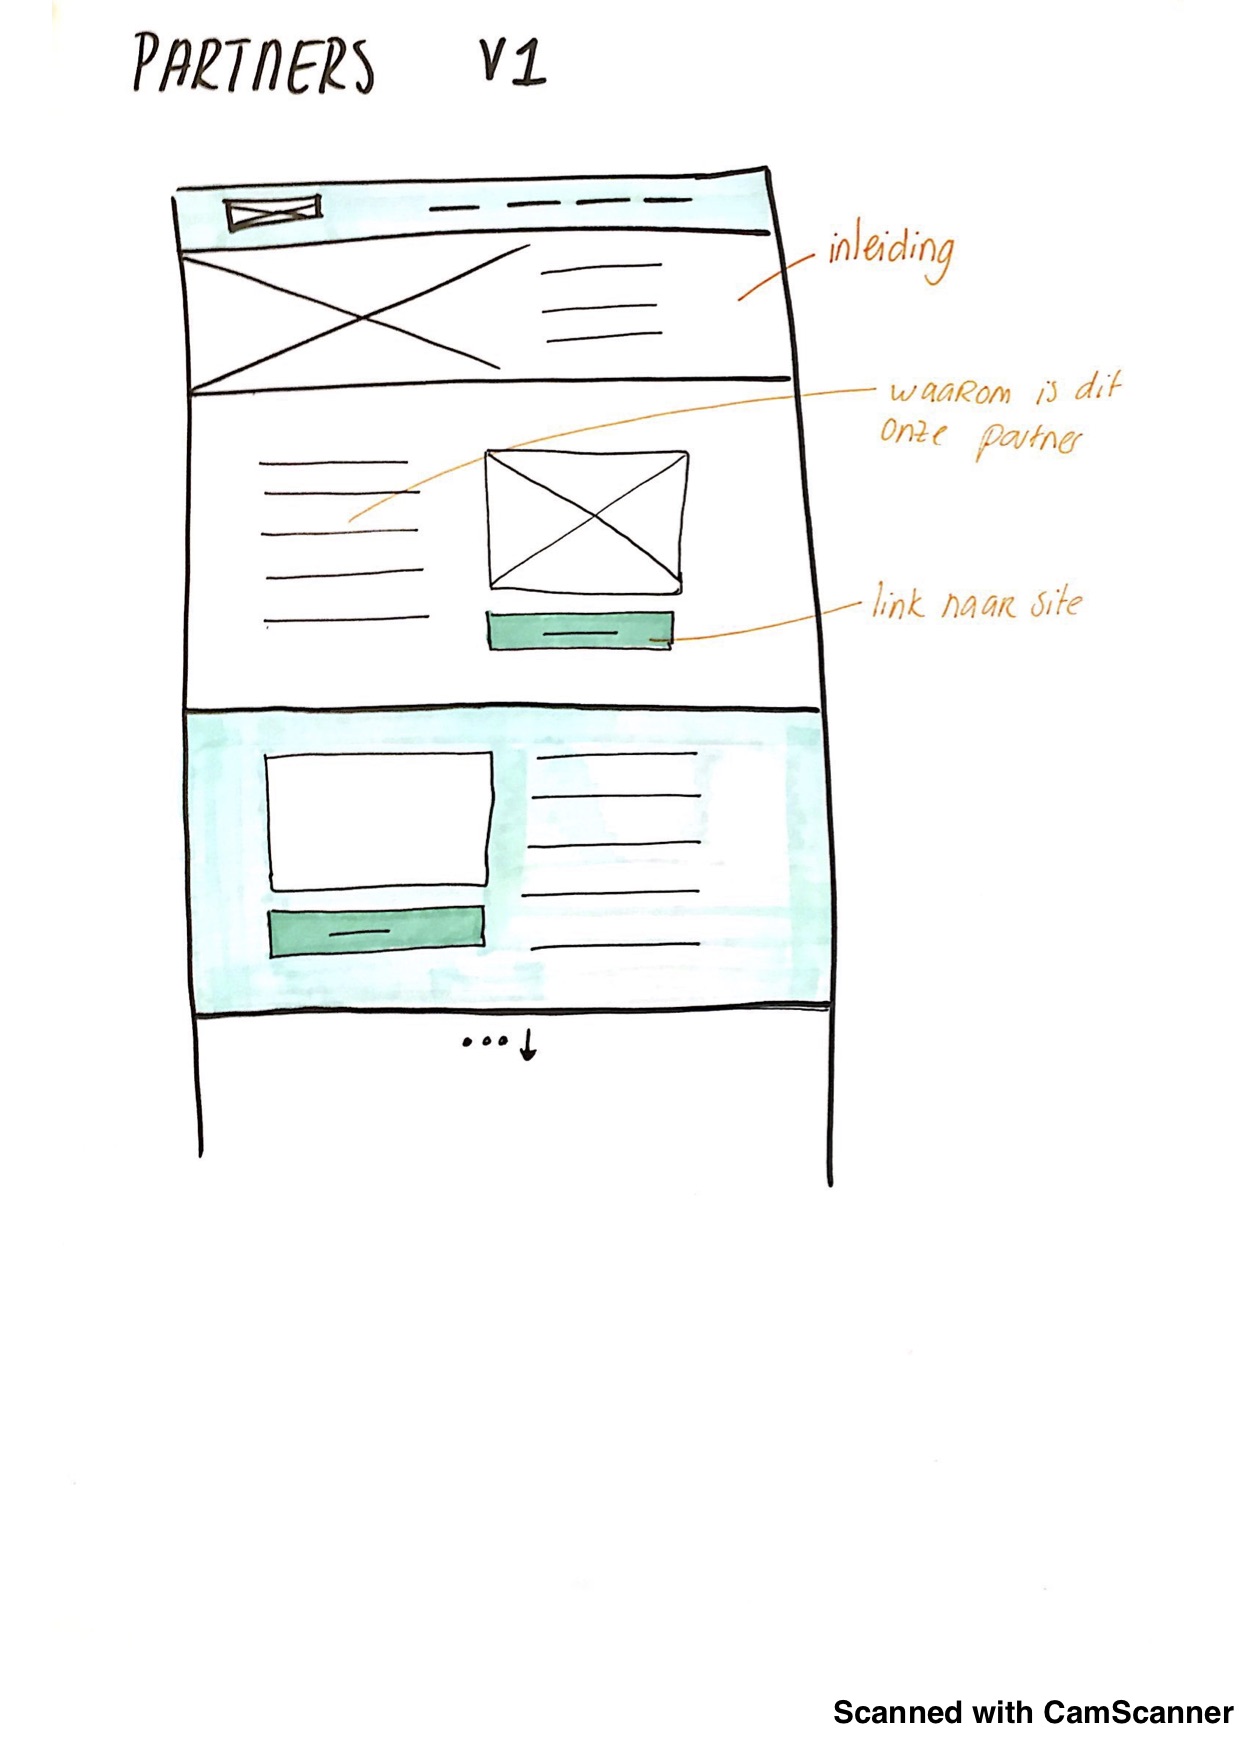 PARTNERS V1
inleiding
waarom is dit
onze partner
link naar site
Scanned with CamScanner